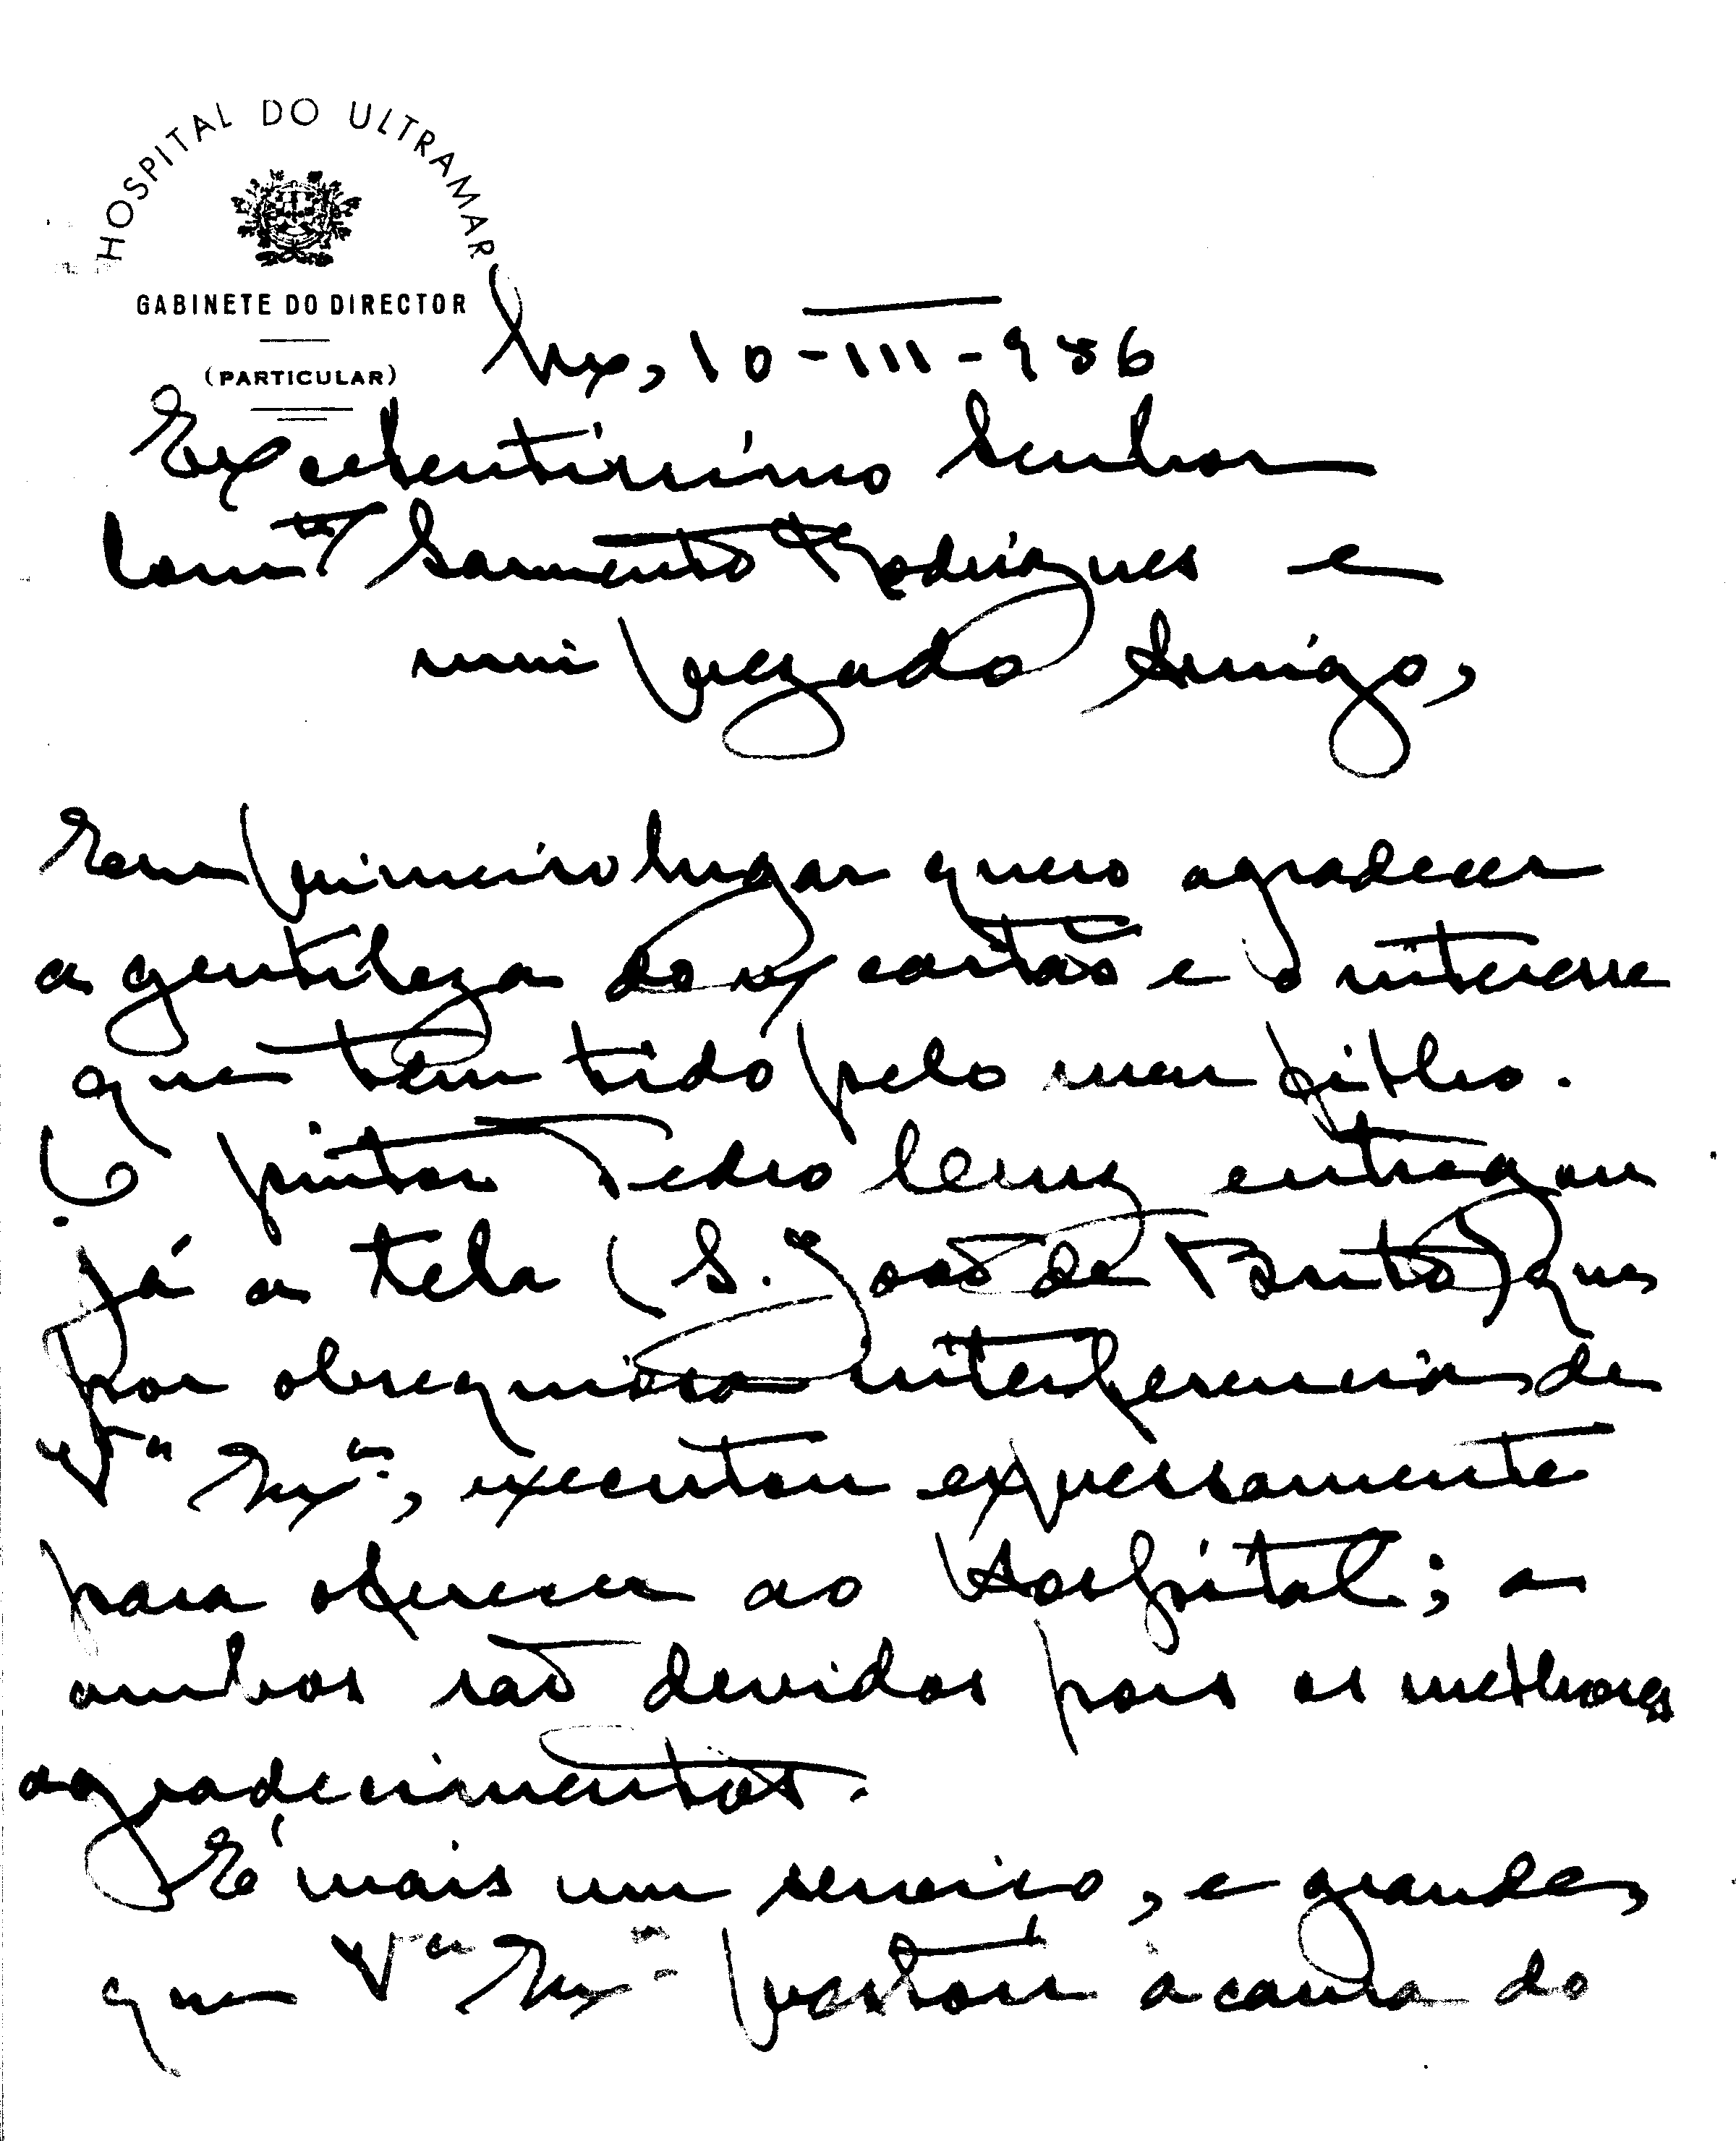 HOSPITAL DO ULTRAMAR
GABINETE DO DIRECTOR
(PARTICULAR)
Lxª, 10-III-956
Excelentíssimo Senhor
Comte Sarmento Rodrigues e
mui prezado Amigo,
Em primeiro lugar quero agradecer
a gentileza do s/ cartão e o interesse
que tem tido pelo meu filho.
O pintor Pedro Cruz entregou
já a tela (S. João de Brito) que
por obsequiosa interferencia de
Vª Exª, executou expressamente
para oferecer ao Hospital; a
ambos são devidos pois os melhores
agradecimentos.
É mais um serviço, e grande,
que Vª Exª prestou à causa do